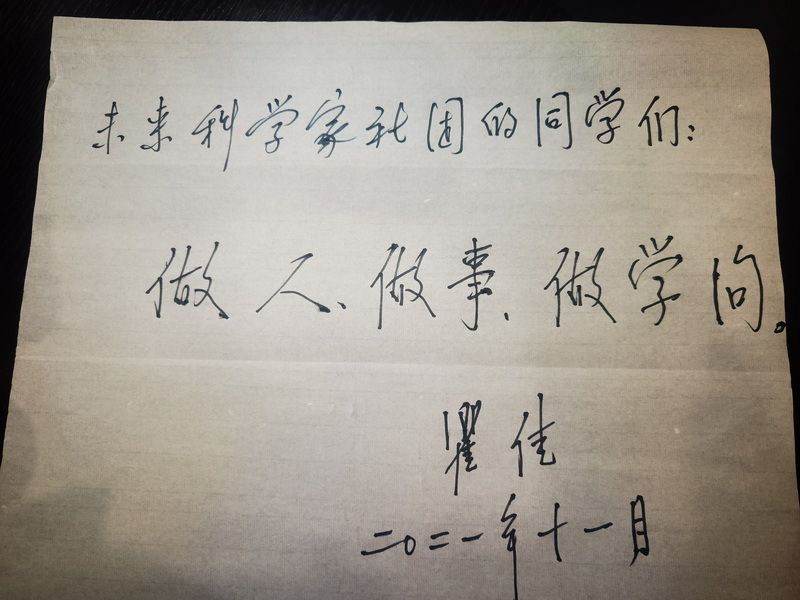 未来科学家社团的同学们:
做人、做事、做学问。
瞿佳
二〇二一年十一月